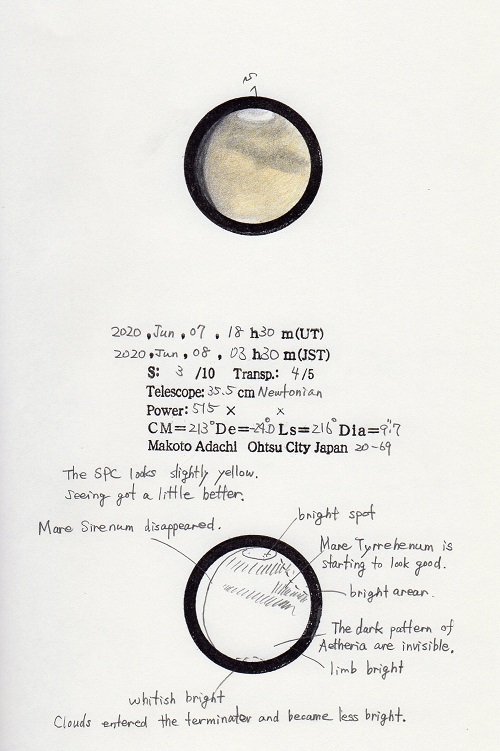 S
2020, Jun, 07, 18 h30 m(UT)
2020, Jun, 08, 03 h30 m(JST)
S: 3 /10 Transp.: 4/5
Telescope: 35.5 cm Newtonian
Power: 515 × ×
CM=213° De=-24.0 Ls=216° Dia=9."7
Makoto Adachi Ohtsu City Japan 20-69
The SPC looks slightly yellow.
Seeing got a little better.
bright spot
Mare Sirenum disappeared.
Mare Tyrrehenum is
starting to look good.
bright arear.
The dark pattern of
Aetheria are invisible.
limb bright
whitish bright
Clouds entered the terminater and became less bright.